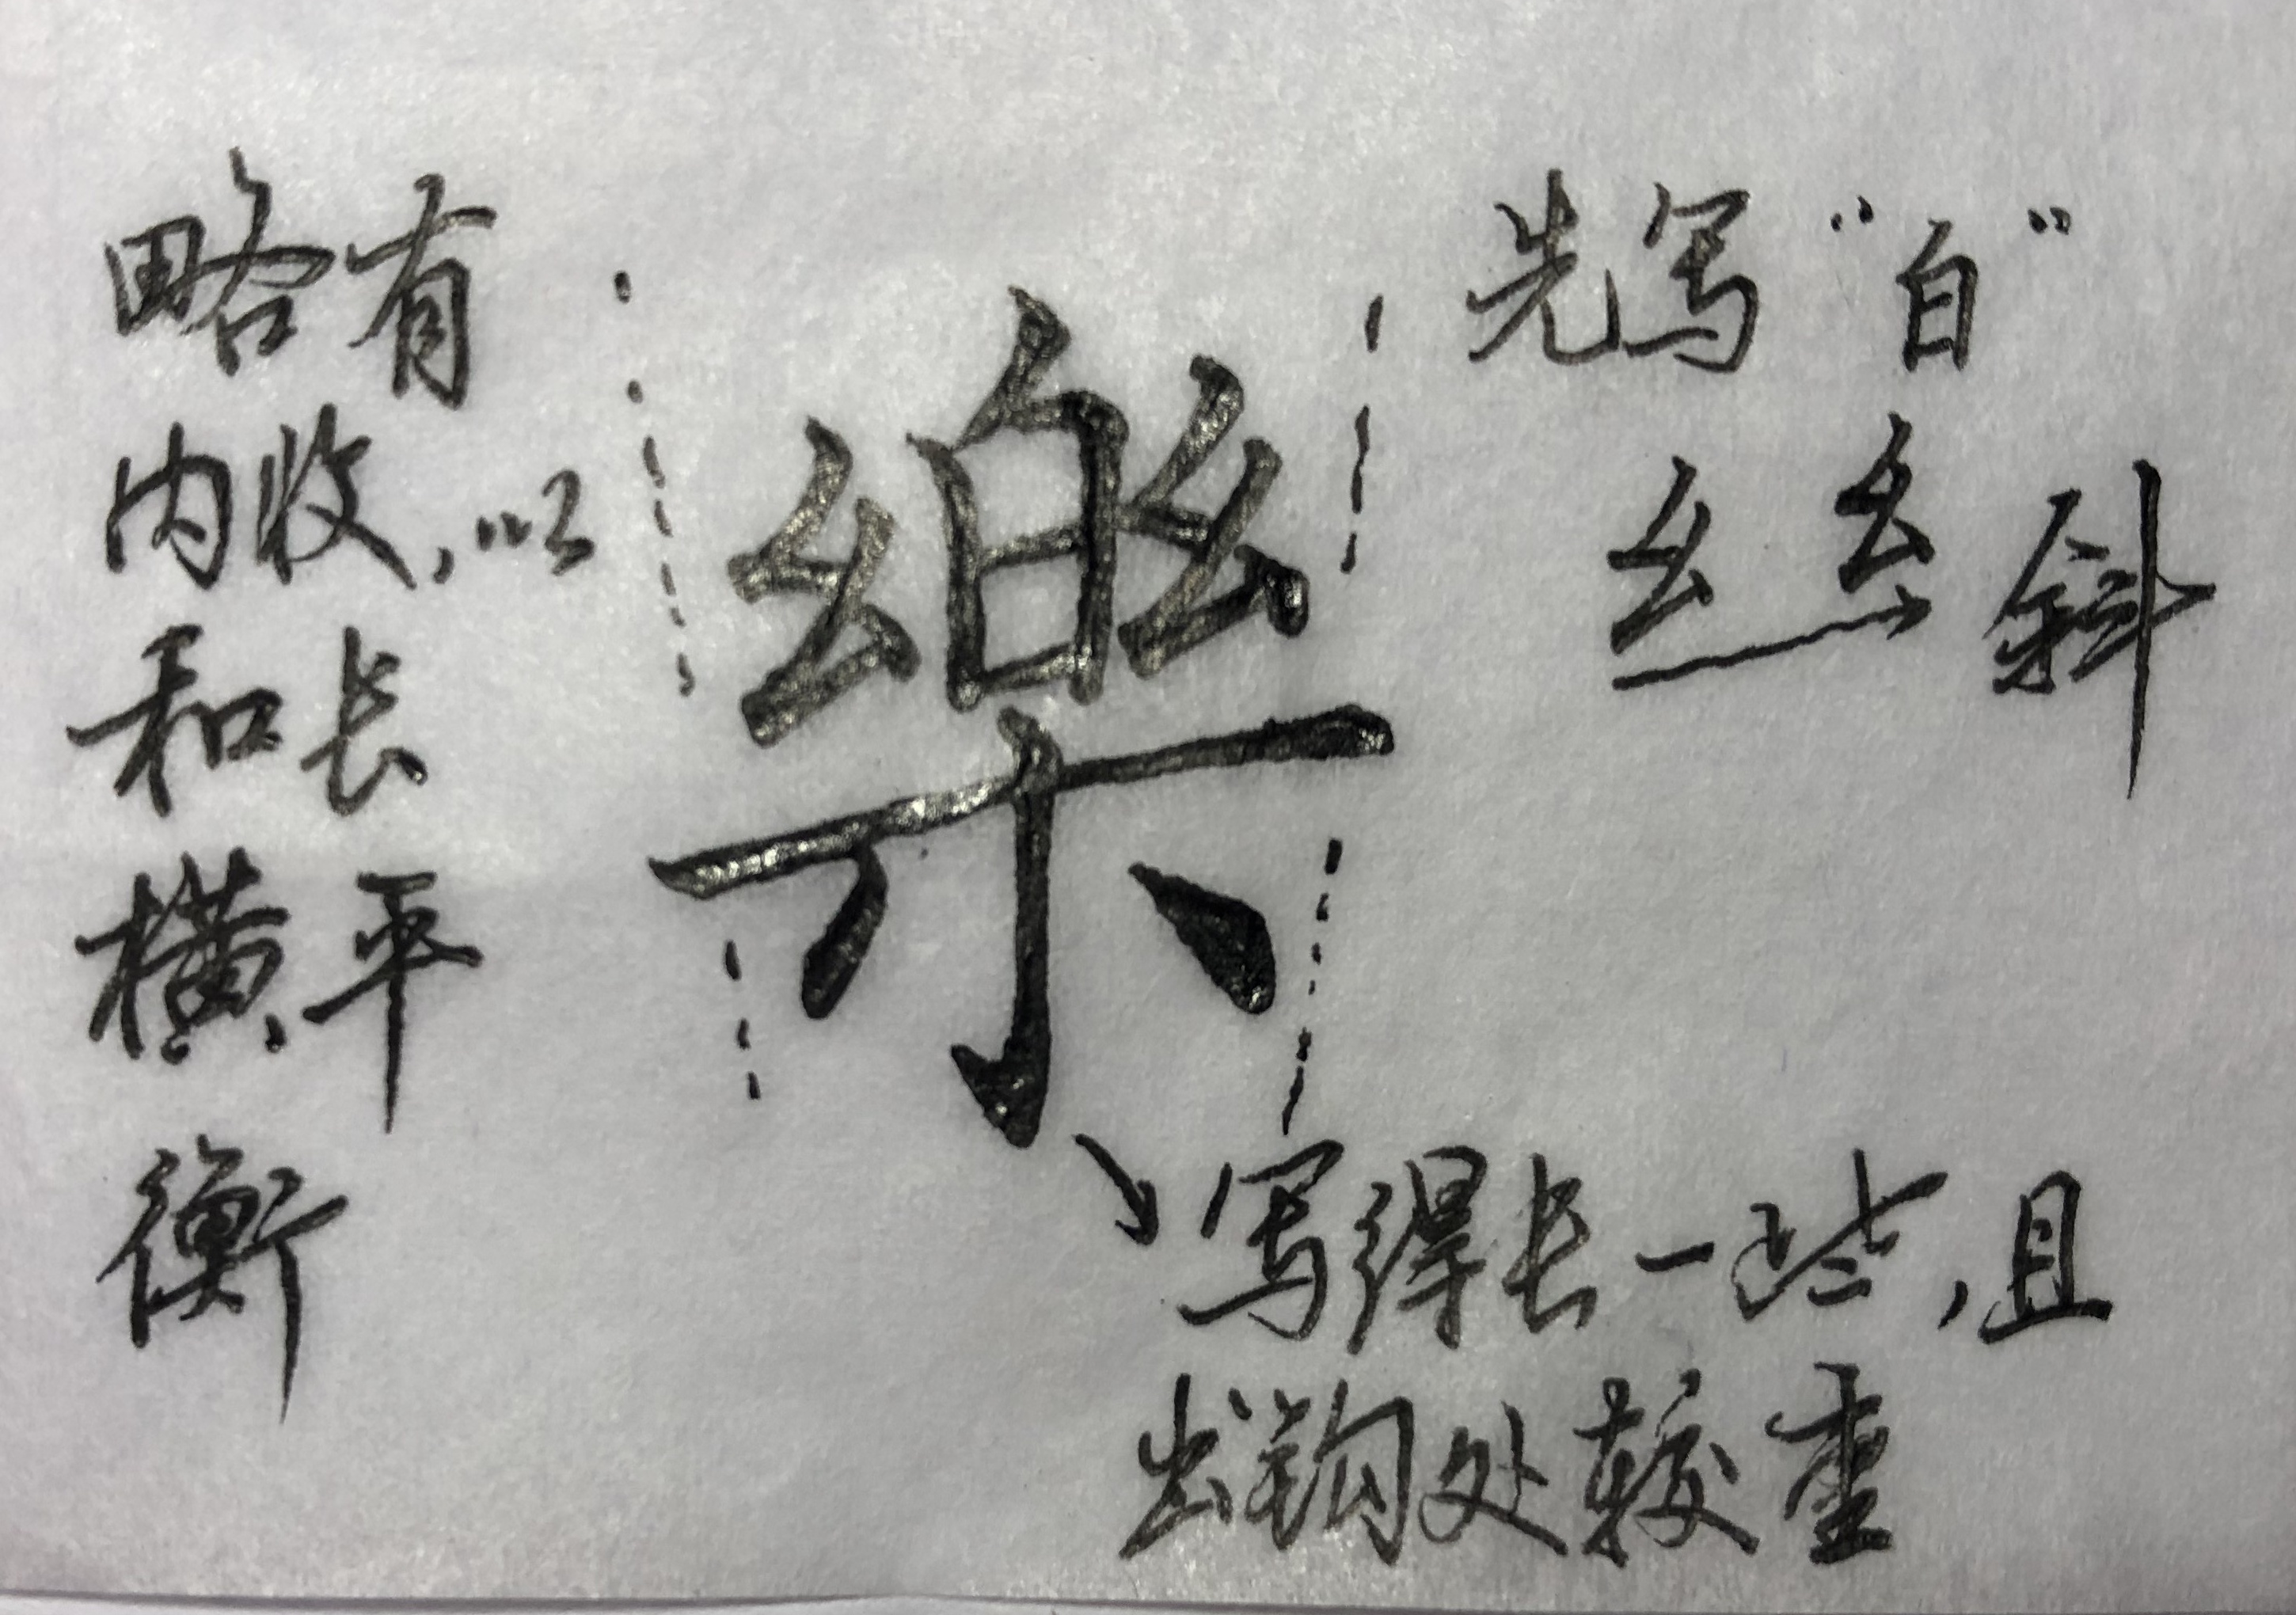 略有
内收,以
和长
横平
衡
樂
先写“白”
幺幺斜
写得长一些,且
出钩处较重